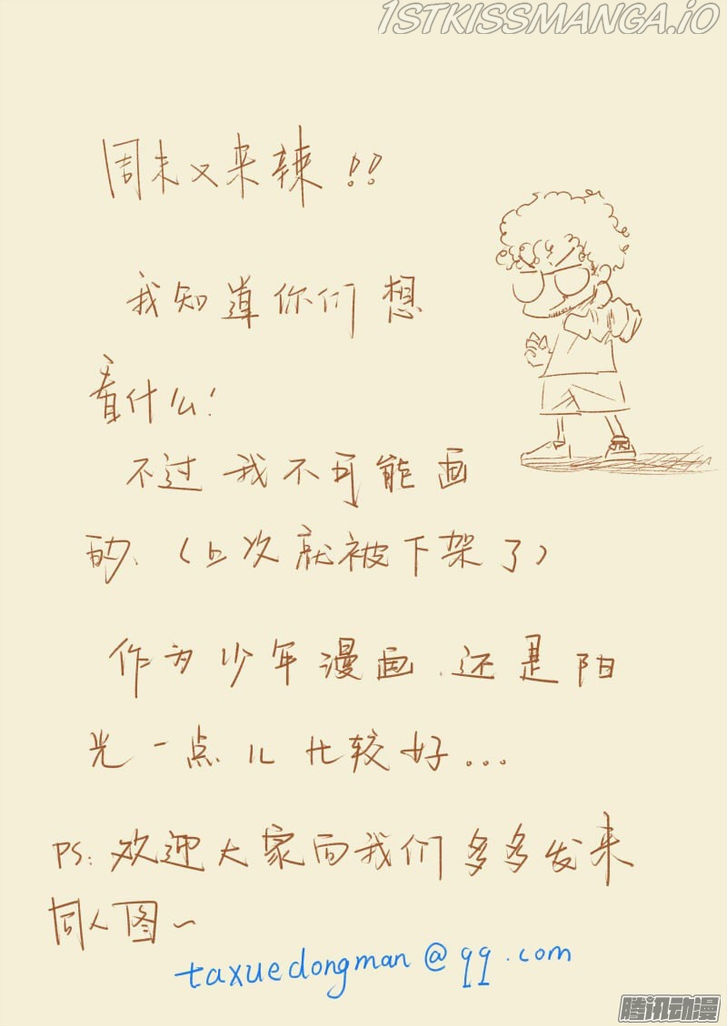 1STKISSMANGA.iO
周末又来辣！！
我知道你们想
看什么！
不过我不可能画
的、（上次就被下架了）
作为少年漫画.还是阳
光一点儿比较好...
PS:欢迎大家向我们多多发来
同人图~
taxuedongman@qq.com
腾讯动漫